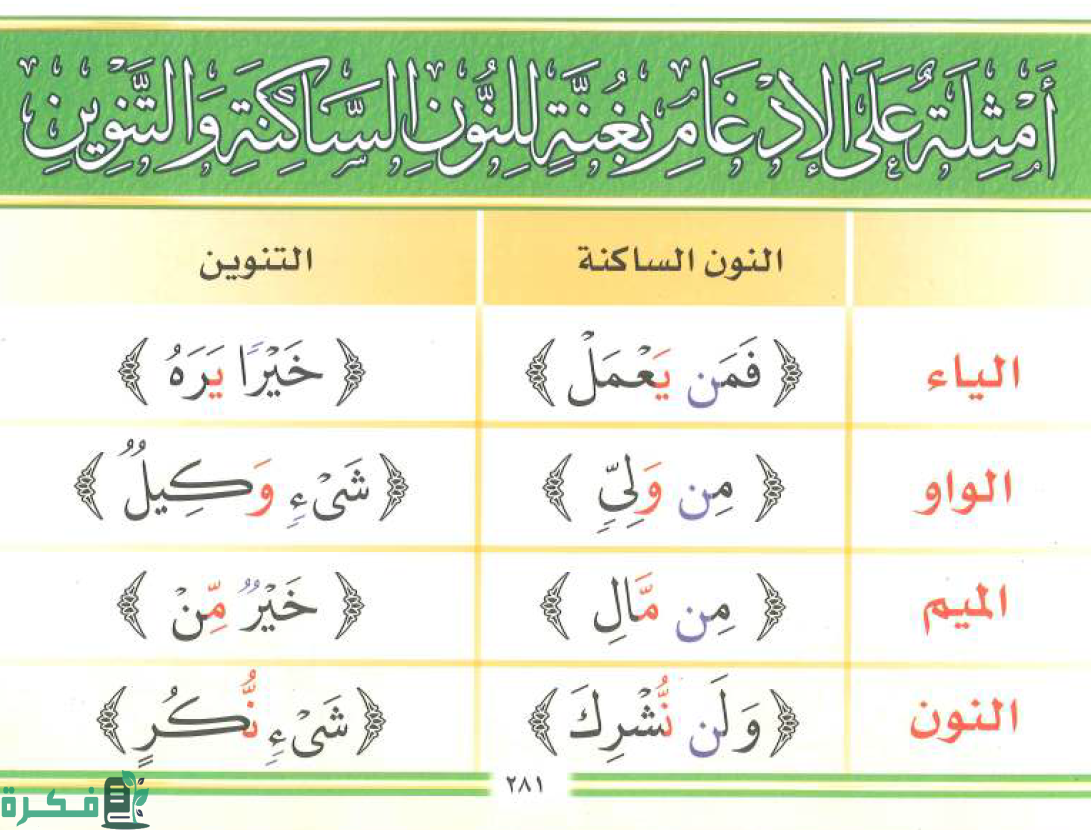 أَمْثِلَةٌ عَلَى الإِدْغَامِ بِغُنَّةٍ لِلنُّونِ السَّاكِنَةِ وَالتَّنْوِينِ
النون الساكنة التنوين
الياء ﴿ فَمَن يَعْمَلْ ﴾ ﴿ خَيْرًا يَرَهُ ﴾
الواو ﴿ مِن وَلِيٍّ ﴾ ﴿ شَىْءٍ وَكِيلٌ ﴾
الميم ﴿ مِن مَّالٍ ﴾ ﴿ خَيْرٌ مِّنْ ﴾
النون ﴿ وَلَن نُّشْرِكَ ﴾ ﴿ شَىْءٍ نُّكُرٍ ﴾
٢٨١
فكرة